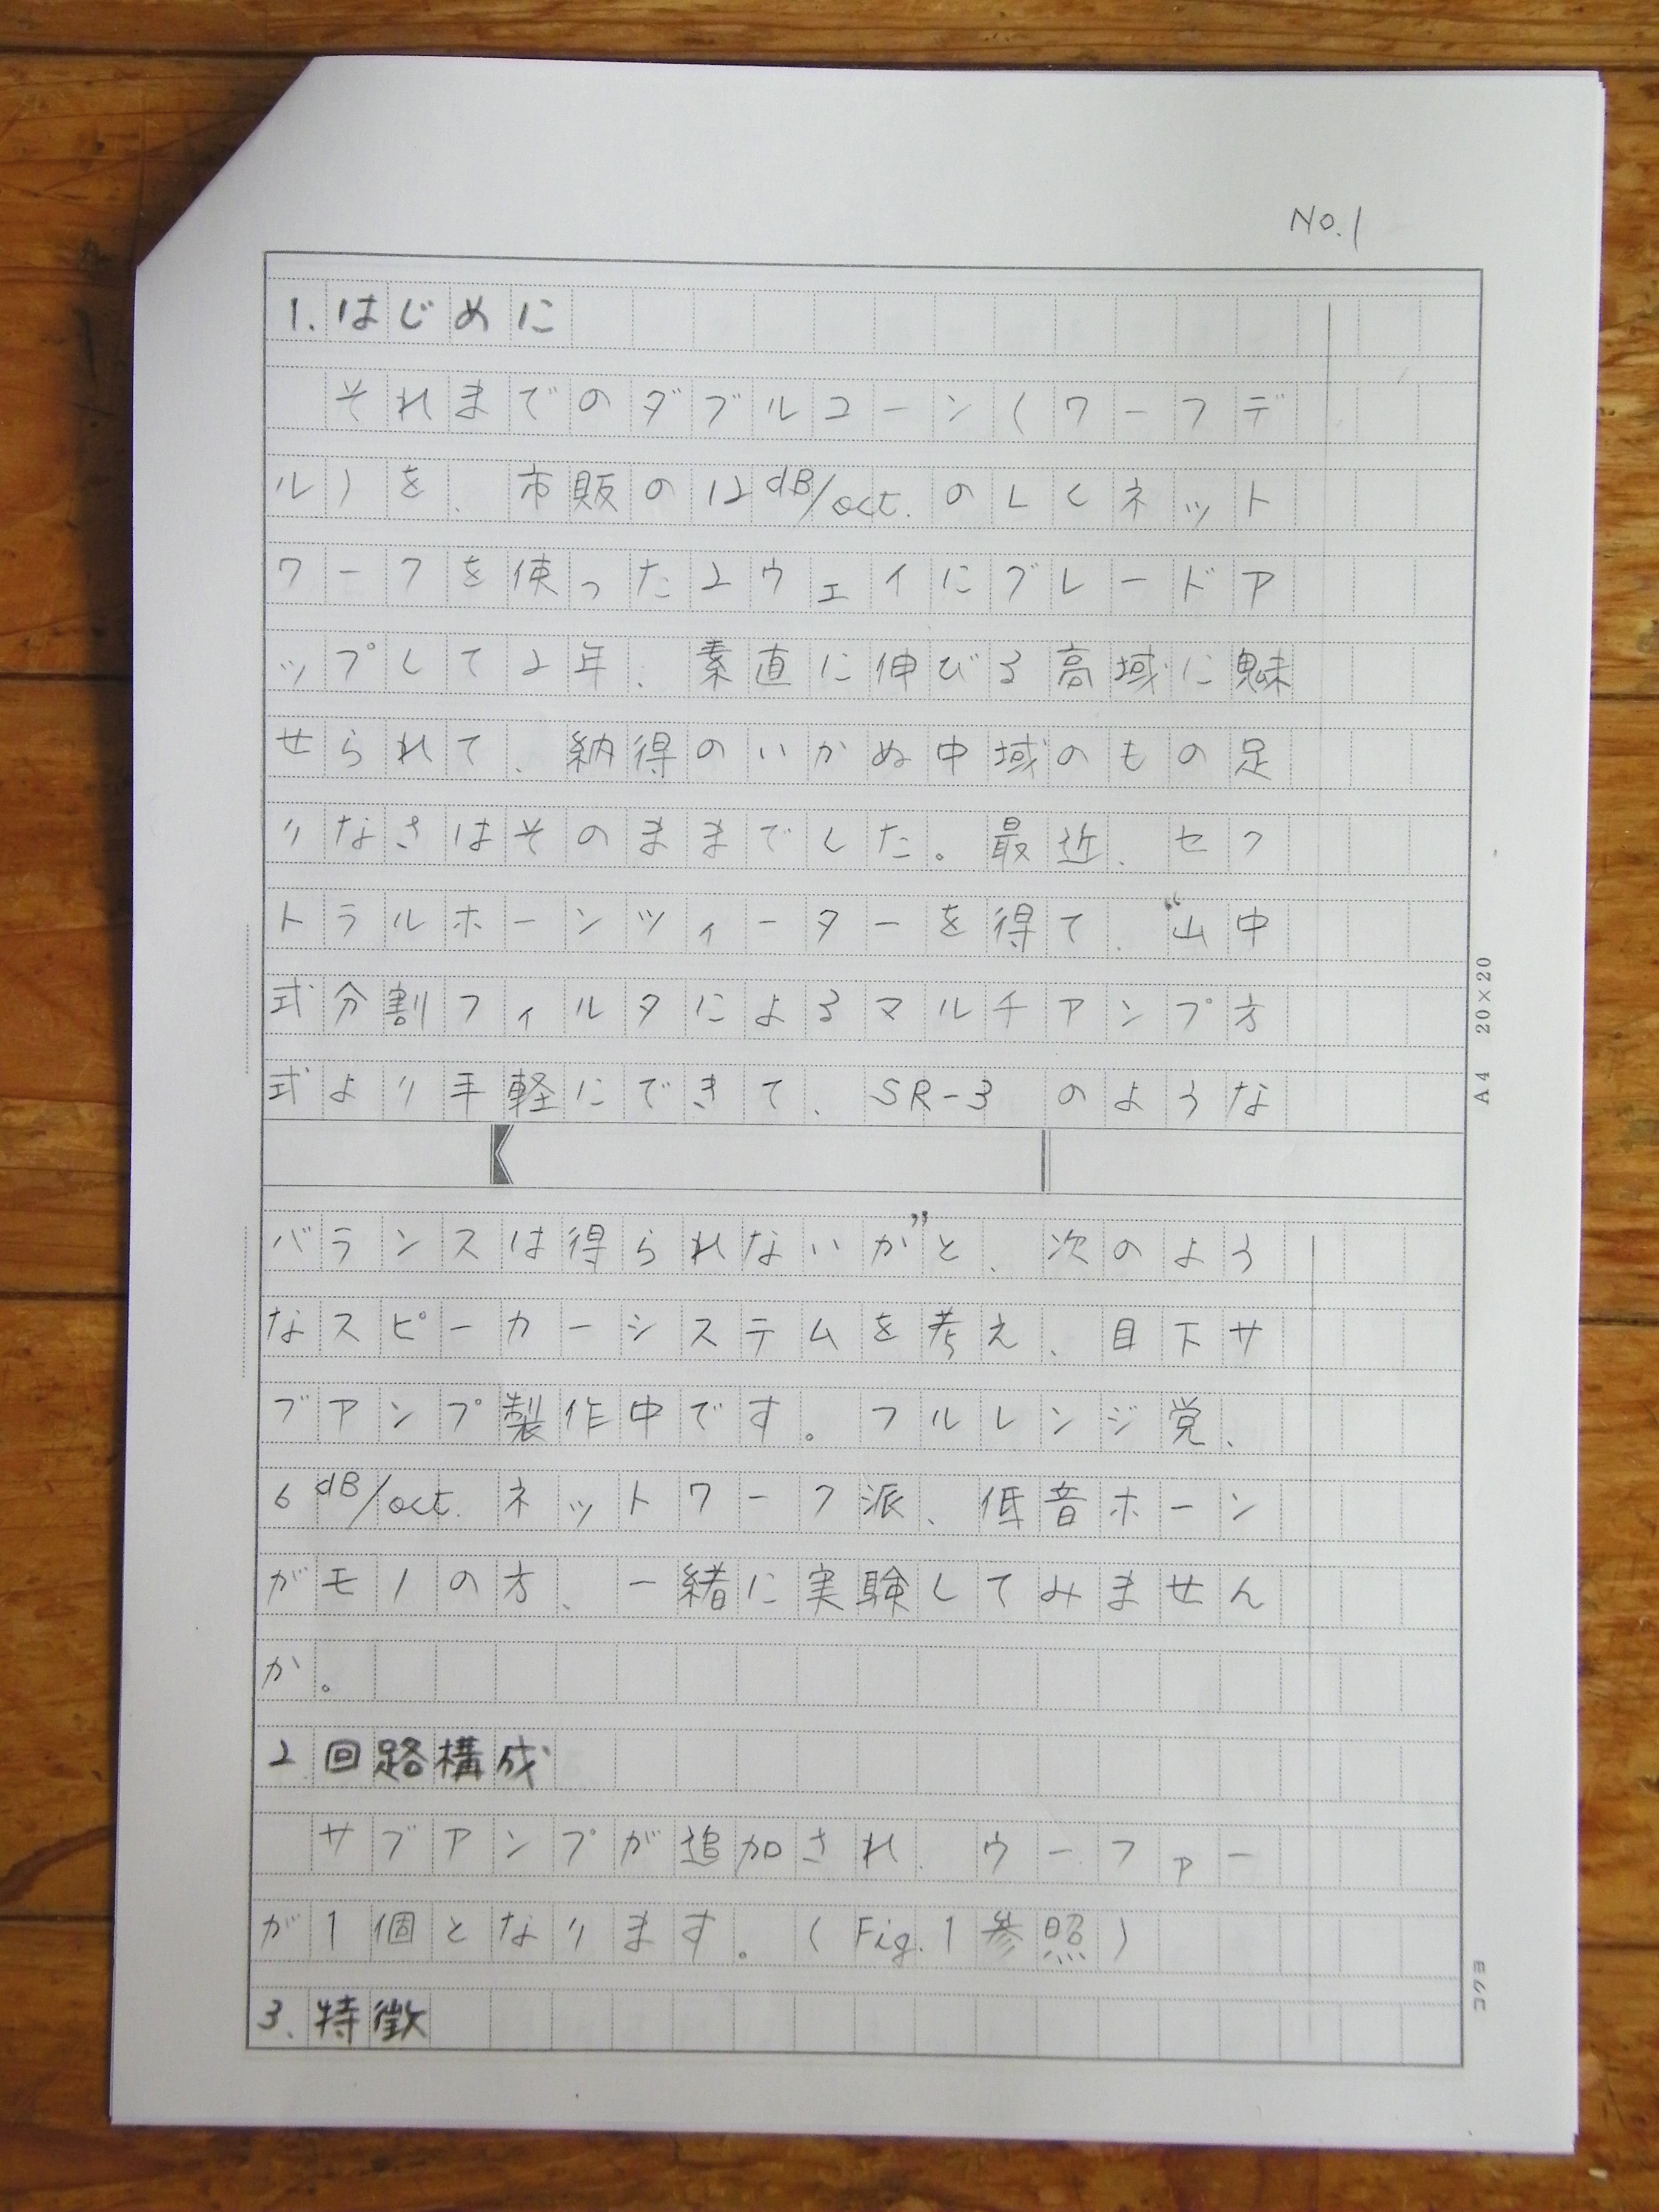 No.1
1.はじめに
それまでのダブルコーン(ワーフデ
ル)を、市販の12dB/oct.のLCネット
ワークを使った2ウェイにグレードア
ップして2年、素直に伸びる高域に魅
せられて、納得のいかぬ中域のもの足
りなさはそのままでした。最近、セク
トラルホーンツィーターを得て、“山中
式分割フィルタによるマルチアンプ方
式より手軽にできて、SR-3のような
バランスは得られないか”と、次のよう
なスピーカーシステムを考え、目下サ
ブアンプ製作中です。フルレンジ党、
6dB/oct.ネットワーク派、低音ホーン
がモノの方、一緒に実験してみません
か。
2.回路構成
サブアンプが追加され、ウーファー
が1個となります。(Fig.1参照)
3.特徴
A4 20×20
コクヨ